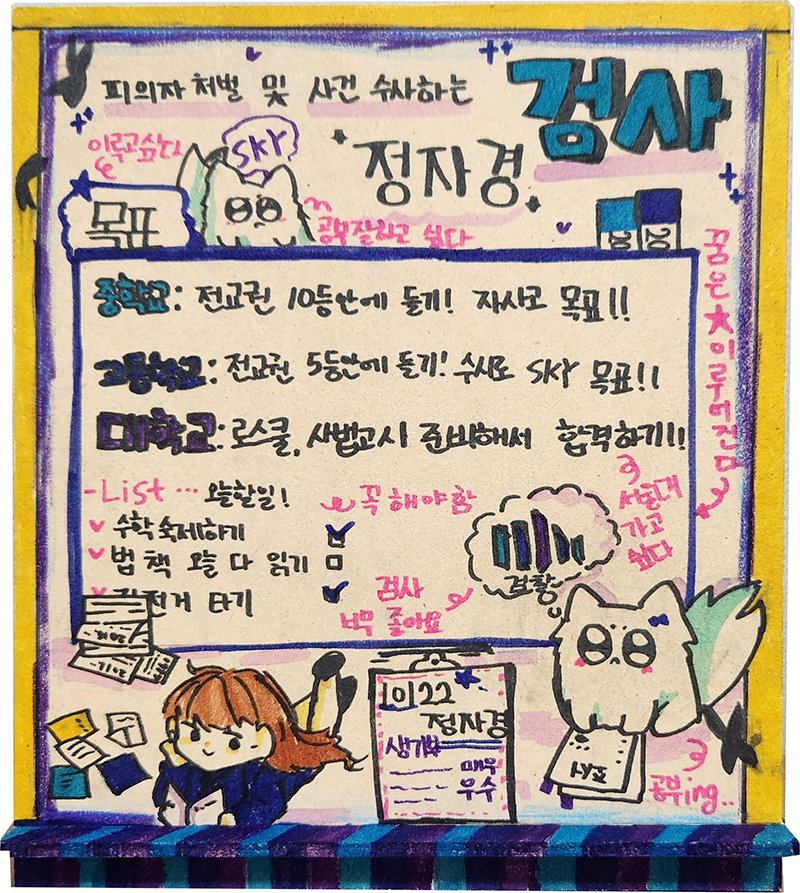 피의자 처벌 및 사건 수사하는
검사
이루고싶다
SKY
정자경
목표
공부잘하고 싶다
중학교: 전교권 10등안에 들기! 자사고 목표!!
고등학교: 전교권 5등안에 들기! 수시로 SKY 목표!!
대학교: 로스쿨, 사법고시 준비해서 합격하기!!
꿈은★이루어진다
-List … 오늘할일!
꼭 해야 함
수학숙제하기
법 책 오늘 다 읽기
전거 타기
서울대
가고
싶다
검찰
검사
너무 좋아요
1022
정자경
생기부
매우
우수
공부ing..